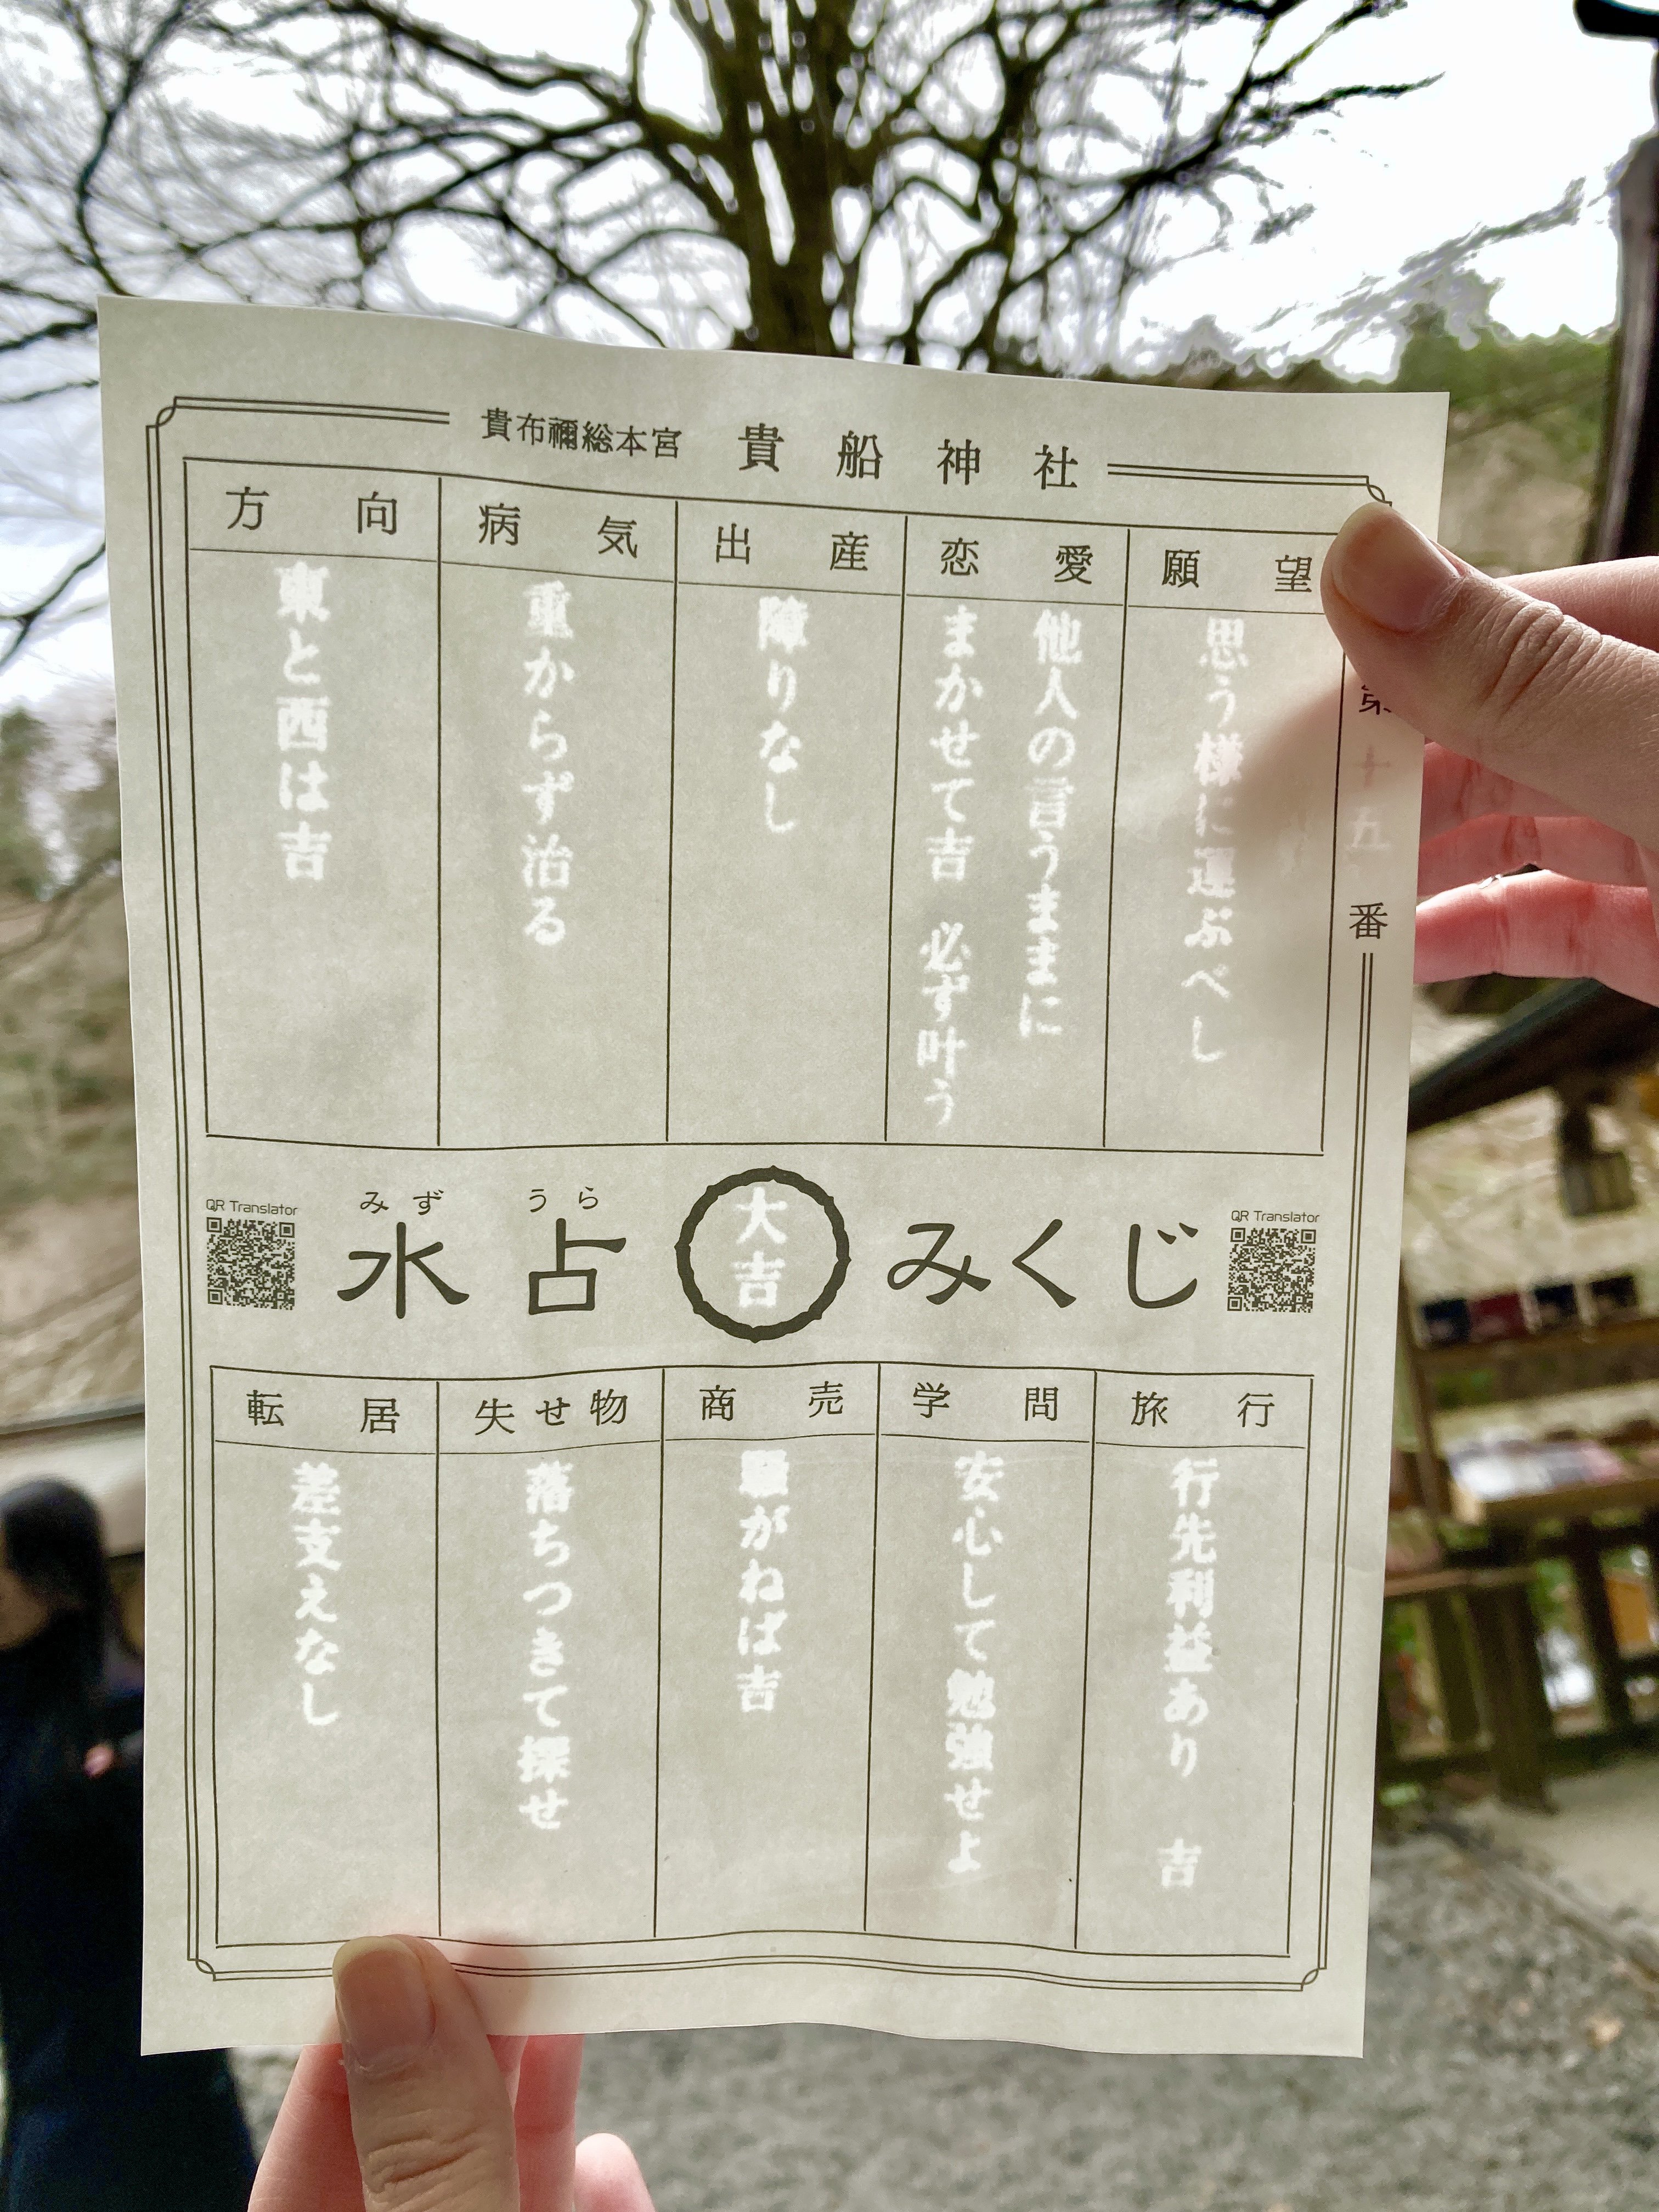 貴布禰総本宮 貴船神社
第十五番
願望
思う様に運ぶべし
恋愛
他人の言うままに
まかせて吉 必ず叶う
出産
障りなし
病気
重からず治る
方向
東と西は吉
QR Translator
みずうら
水占
大吉
みくじ
QR Translator
旅行
行先利益あり 吉
学問
安心して勉強せよ
商売
騒がねば吉
失せ物
落ちつきて探せ
転居
差支えなし